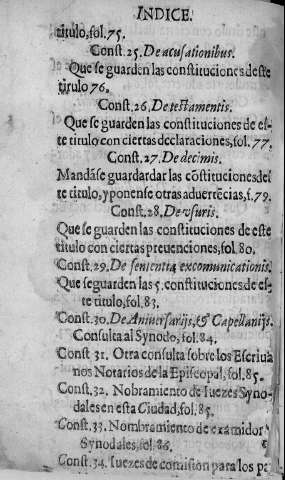 INDICE.
titulo, fol. 75.
Const. 25. De acusationibus.
Que se guarden las constituciones deste
titulo 76.
Const. 26. De testamentis.
Que se guarden las constituciones de es-
te titulo con ciertas declaraciones, fol. 77.
Const. 27. De decimis.
Mandáse guardardar las cõstituciones des
te titulo, y ponense otras aduertẽcias, f. 79.
Const. 28. De vsuris.
Que se guarden las constituciones de este
titulo con ciertas preuenciones, fol. 80.
Const. 29. De sententia excomunicationis.
Que se guarden las 5. constituciones de es-
te titulo, fol. 83.
Const. 30. De Aniuersarijs, & Capellanijs.
Consulta al Synodo, fol. 84.
Const 31. Otra consulta sobre los Escriua
nos Notarios de la Episcopal, fol. 85.
Const. 32. Nobramiento de Iuezes Syno-
dales en esta Ciudad, fol. 85.
Const. 33. Nombramiento de examidor
Synodales, fol. 86.
Const. 34. Iuezes de comision para los